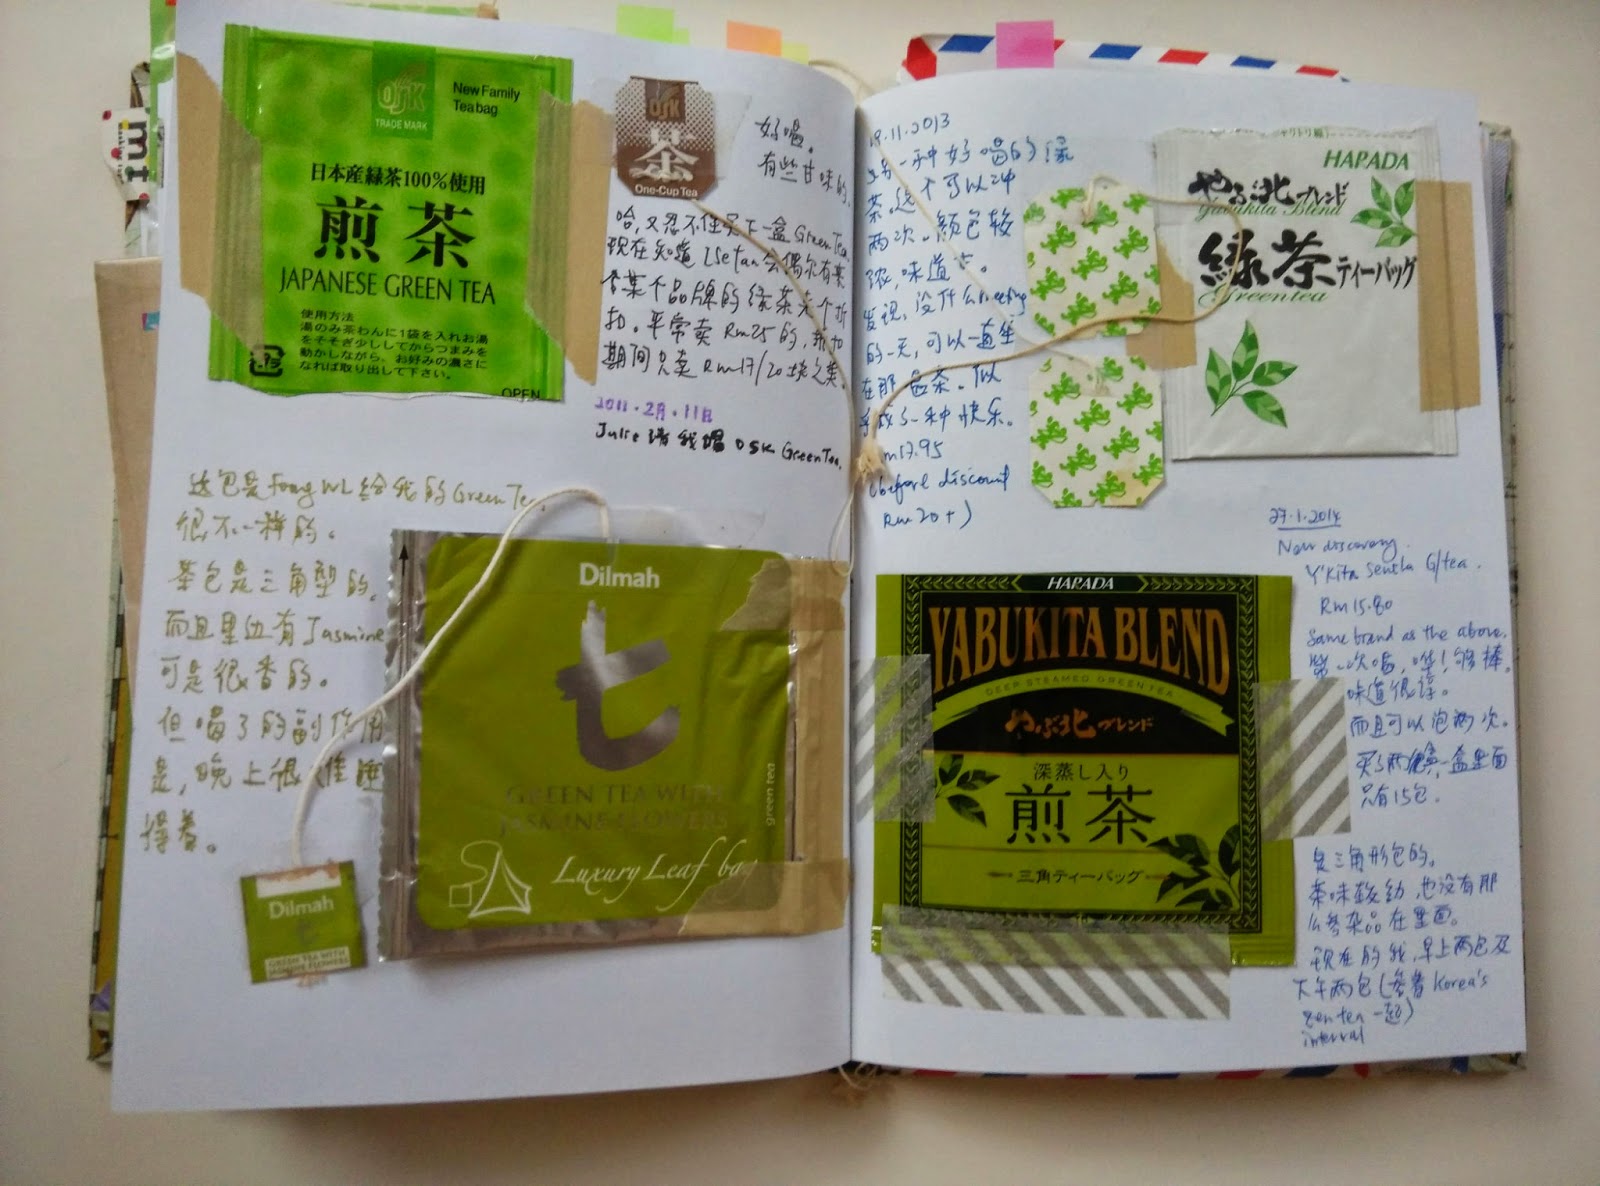 OSK
TRADE MARK
New Family
Teabag
日本産緑茶100%使用
煎茶
JAPANESE GREEN TEA
使用方法
湯のみ茶わんに1袋を入れお湯
をそそぎ少ししてからつまみを
動かしながら、お好みの濃さに
なれば取り出して下さい。
OPEN
OSK
茶
One-Cup Tea
好喝。
有些甘味的。
哈,又忍不住买下一盒Green Tea.
现在知道Isetan会偶尔有某
个某个品牌的绿茶来个折
扣。平常卖Rm25的,折扣
期间只卖Rm17/20块之类。
2011.2月.11日
Julie请我喝OSK Green Tea.
这包是Fong WL给我的Green Tea.
很不一样的。
茶包是三角型的。
而且里边有Jasmine
可是很香的。
但喝了的副作用
是,晚上很
得着。
Dilmah
GREEN TEA WITH
JASMINE FLOWERS
green tea
Luxury Leaf bag
Dilmah
GREEN TEA WITH
JASMINE FLOWERS
19.11.2013
另一种好喝的绿
茶。这个可以冲
两次。颜色较
浓,味道
发现,没什么meeting
的一天,可以一直坐
在那
一种快乐。
Rm17.95
(before discount
Rm20+)
HARADA
やぶ北ブレンド
Yabukita Blend
緑茶ティーバッグ
Green tea
27.1.2014
New discovery.
Y'Kita Sencha G/tea.
Rm15.80
Same brand as the above.
第一次喝,哗!够棒。
味道很
而且可以泡两次。
买了两
一盒里面
只有15包.
是三角形包的。
茶味较幼,也没有那
么多杂品在里面。
现在的我,早上两包及
下午两包(参着Korea's
green tea一起)
interval
HARADA
YABUKITA BLEND
DEEP STEAMED GREEN TEA
やぶ北ブレンド
深蒸し入り
煎茶
三角ティーバッグ